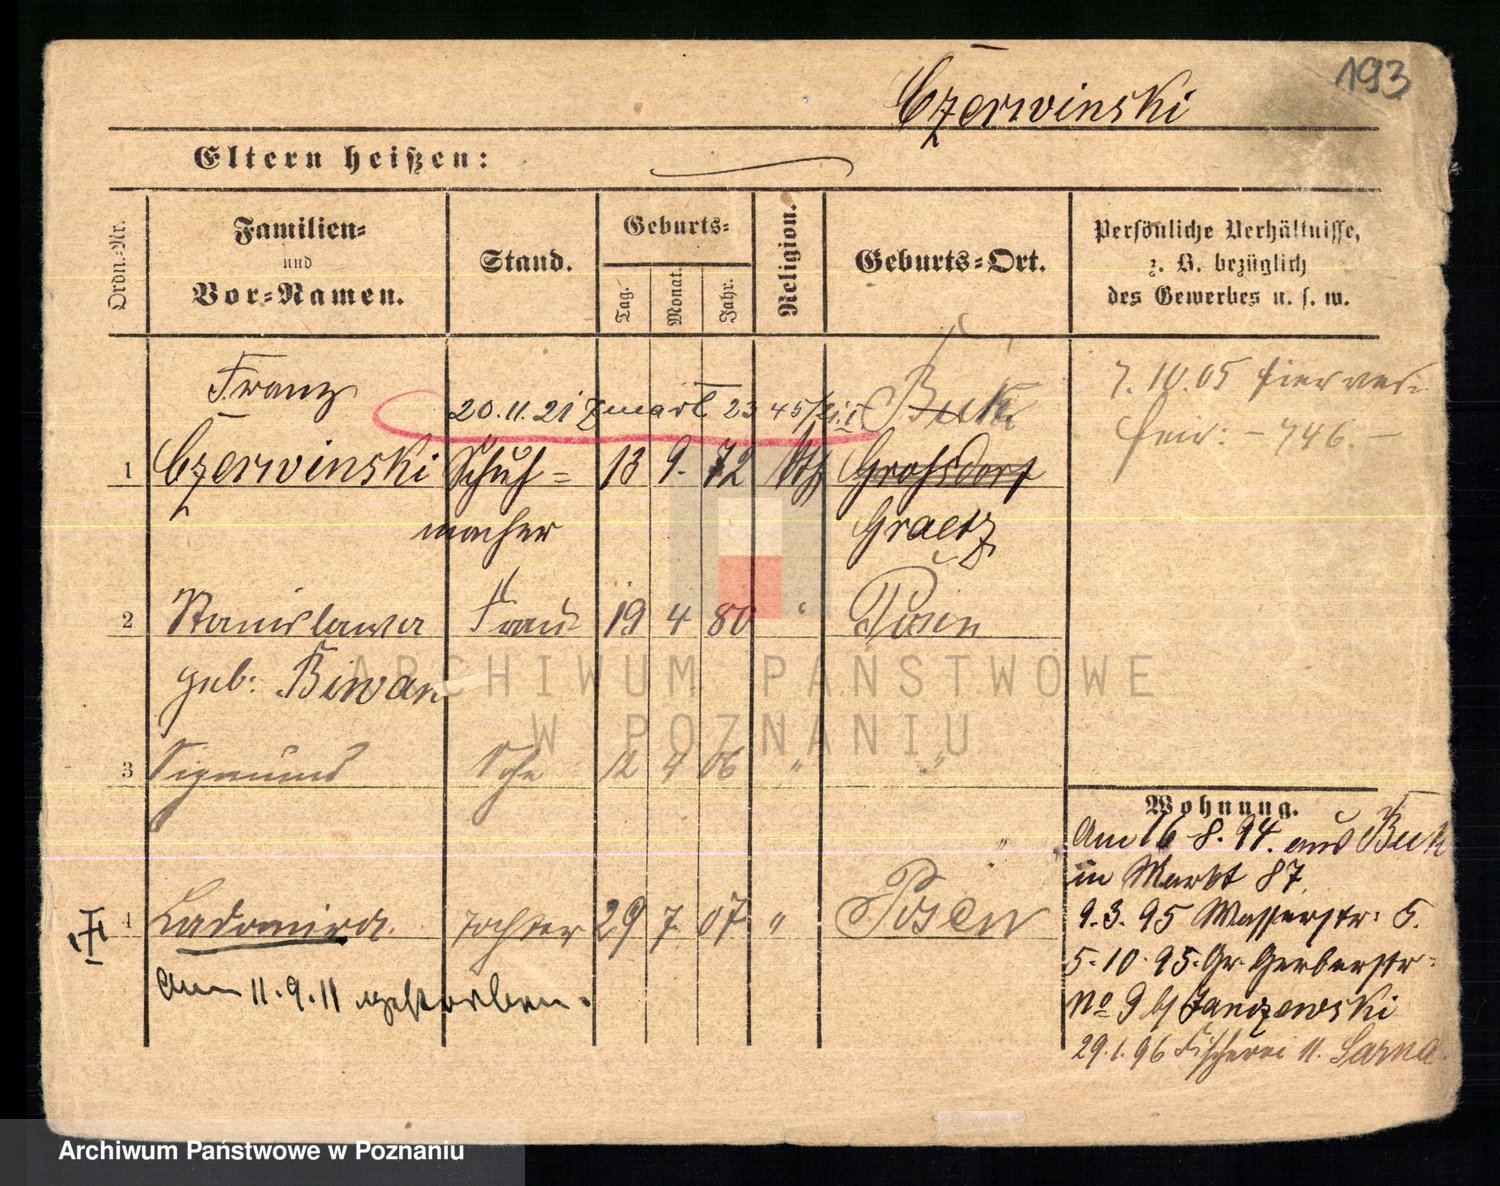 193
Czerwinski
Eltern heißen:
Ordn.-Nr.
Familien-
und
Vor-Namen.
Stand.
Geburts-
Tag.
Monat.
Jahr.
Religion.
Geburts-Ort.
Persönliche Verhältnisse,
z. B. bezüglich
des Gewerbes u. s. w.
Franz
20.11.21 zmarł 23 45/21.
Buk
7.10.05 hier
- 746. -
1 Czerwinski Schuh= 13 9. 72 kth Grohsdorf
macher Graetz
2 Stanislawa Frau 19 4 80 " Posen
geb: Biwan
3 Sigmund Sohn 12 4 06 " "
Wohnung.
Am 16.8.94. aus Buk
in Markt 87
9.3.95 Wasserstr: 5.
5.10.95. Gr. Gerberstr=
No 9 b/ Janczewski
29.1.96 Fischerei 11. Sarna
4 Ladomira. Tochter 29 7. 07 " Posen
Am 11.9.11 gestorben.
ARCHIWUM PAŃSTWOWE
W POZNANIU
Archiwum Państwowe w Poznaniu